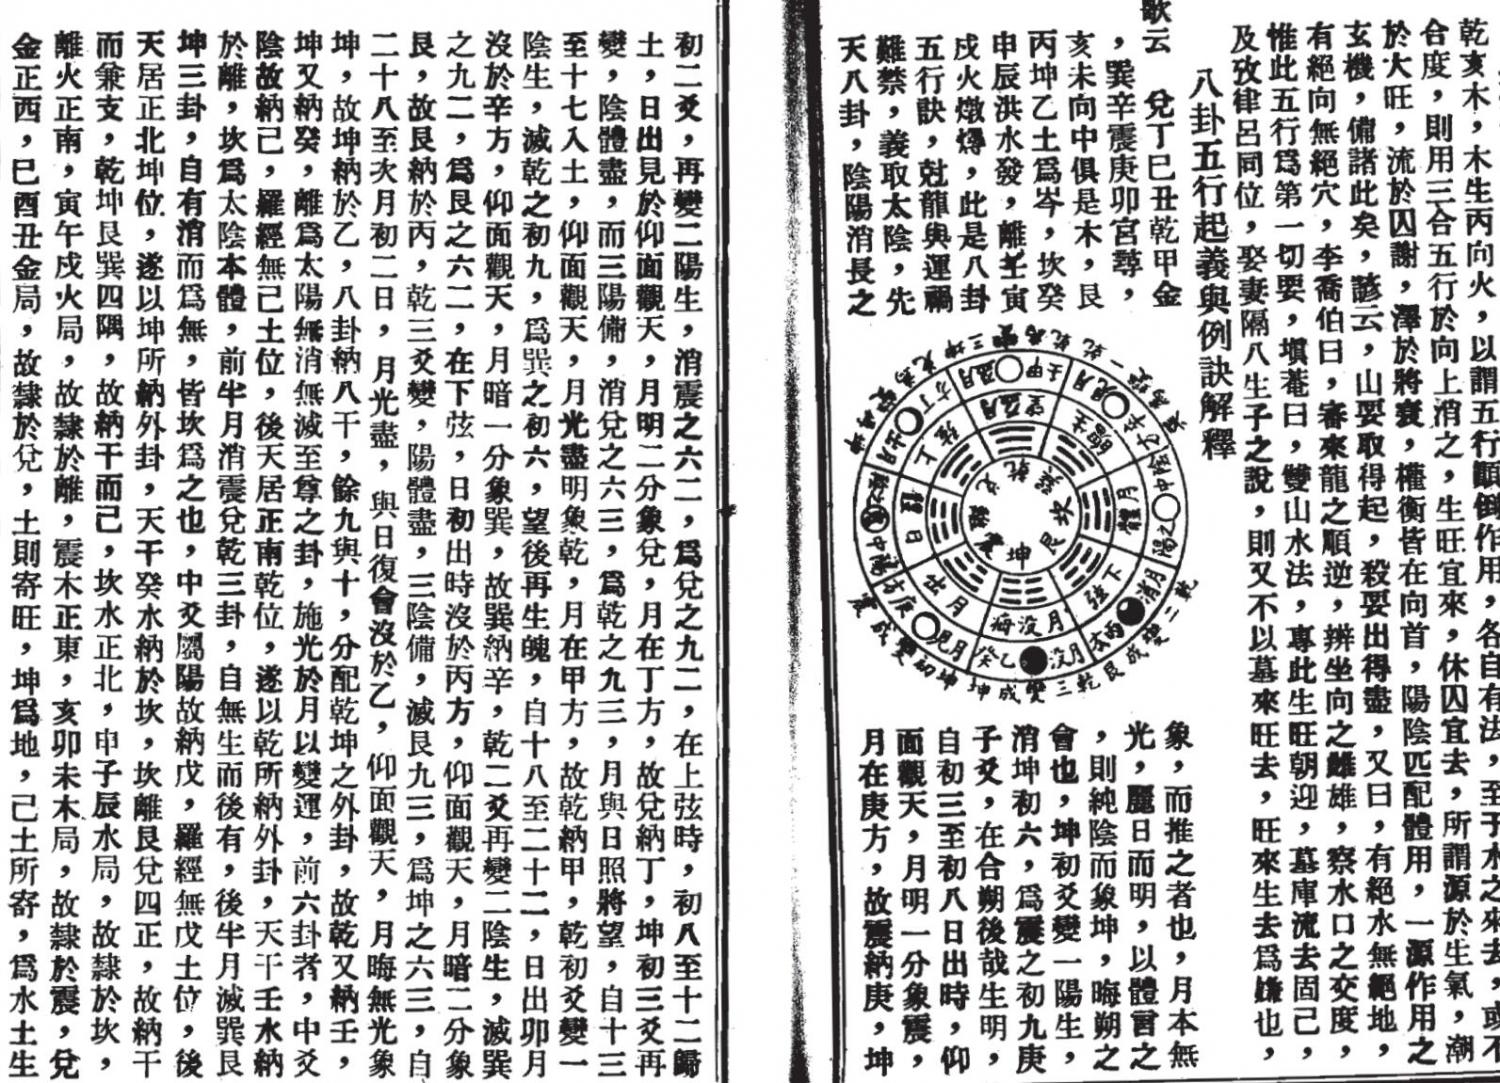 乾亥木，木生丙向火，以謂五行顚倒作用，各自有法，至于水之來去，或不
合度，則用三合五行於向上消之，生旺宜來，休囚宜去，所謂源於生氣，潮
於大旺，流於囚謝，澤於將衰，權衡皆在向首，陽陰匹配體用，一源作用之
玄機，備諸此矣，諺云，山要取得起，殺要出得盡，又曰，有絕水無絕地，
有絕向無絕穴，李喬伯曰，審來龍之順逆，辨坐向之雌雄，察水口之交度，
惟此五行爲第一切要，塡菴曰，雙山水法，專此生旺朝迎，墓庫流去固己，
及攷律呂同位，娶妻隔八生子之說，則又不以墓來旺去，旺來生去爲嫌也，
八卦五行起義與例訣解釋
歌云　兌丁巳丑乾甲金
，巽辛震庚卯宮尋，
亥未向中俱是木，艮
丙坤乙土爲岑，坎癸
申辰洪水發，離壬寅
戌火燉燖，此是八卦
五行訣，尅龍與運禍
難禁，義取太陰，先
天八卦，陰陽消長之
象，而推之者也，月本無
光，麗日而明，以體言之
，則純陰而象坤，晦朔之
會也，坤初爻變一陽生，
消坤初六，爲震之初九庚
子爻，在合朔後哉生明，
自初三至初八日出時，仰
面觀天，月明一分象震，
月在庚方，故震納庚，坤
初二爻，再變二陽生，消震之六二，爲兌之九二，在上弦時，初八至十二歸
土，日出見於仰面觀天，月明二分象兌，月在丁方，故兌納丁，坤初三爻再
變，陰體盡，而三陽備，消兌之六三，爲乾之九三，月與日照將望，自十三
至十七入土，仰面觀天，月光盡明象乾，月在甲方，故乾納甲，乾初爻變一
陰生，滅乾之初九，爲巽之初六，望後再生魄，自十八至二十二，日出卯月
沒於辛方，仰面觀天，月暗一分象巽，故巽納辛，乾二爻再變二陰生，滅巽
之九二，爲艮之六二，在下弦，日初出時沒於丙方，仰面觀天，月暗二分象
艮，故艮納於丙，乾三爻變，陽體盡，三陰備，滅艮九三，爲坤之六三，自
二十八至次月初二日，月光盡，與日復會沒於乙，仰面觀天，月晦無光象
坤，故坤納於乙，八卦納八干，餘九與十，分配乾坤之外卦，故乾又納壬，
坤又納癸，離爲太陽無消無滅至尊之卦，施光於月以變運，前六卦者，中爻
陰故納己，羅經無己土位，後天居正南乾位，遂以乾所納外卦，天干壬水納
於離，坎爲太陰本體，前半月消震兌乾三卦，自無生而後有，後半月滅巽艮
坤三卦，自有消而爲無，皆坎爲之也，中爻屬陽故納戊，羅經無戊土位，後
天居正北坤位，遂以坤所納外卦，天干癸水納於坎，坎離艮兌四正，故納干
而兼支，乾坤艮巽四隅，故納干而已，坎水正北，申子辰水局，故隸於坎，
離火正南，寅午戌火局，故隸於離，震木正東，亥卯未木局，故隸於震，兌
金正西，巳酉丑金局，故隸於兌，土則寄旺，坤爲地，己土所寄，爲水土生